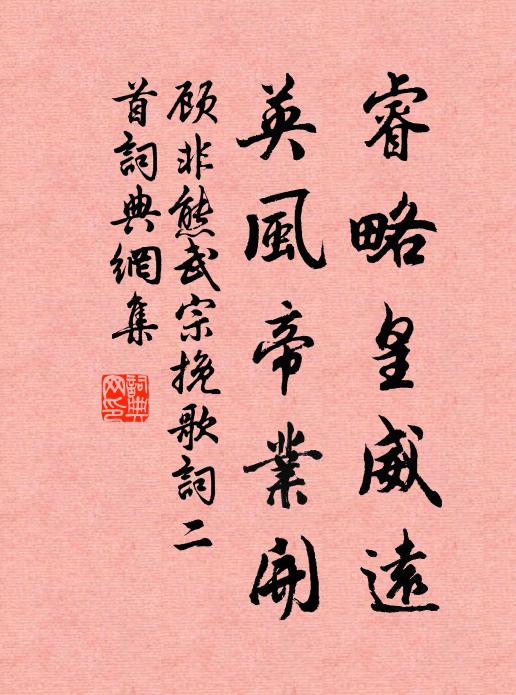 睿略皇威遠
英風帝業開
顾非熊武宗挽歌詞二
首詞典網集
詞典
网印